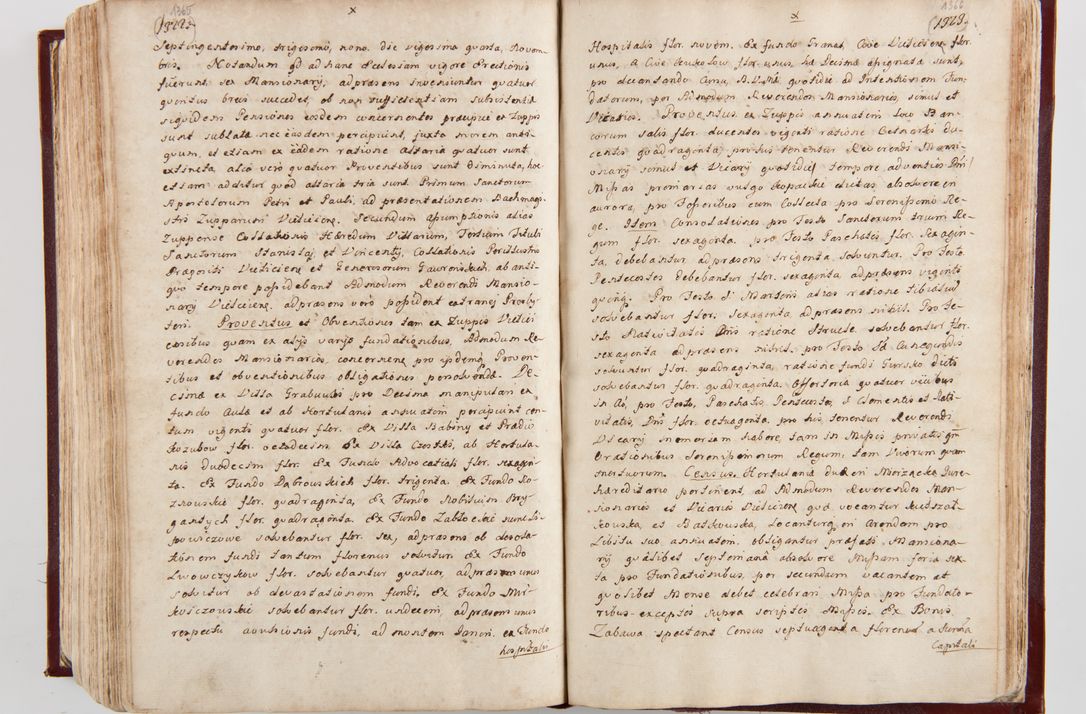 1365
(1322.)
x
Septingentesimo, trigesimo, nono. die vigesima quarta, Novem-
bris. Notandum qd ad hanc Ecclesiam vigore Erectionis
fuerunt sex Mansionarij, ad præsens inveniuntur quatuor
quentus brevi succedet, ob non sufficientiam subsistentiæ
siquidem Pensiones eosdem concernentes præcipue ex Zuppis
sunt sublatæ nec easdem percipiunt, juxta morem anti-
quum, et etiam ex eadem ratione Altaria quatuor sunt
extincta, alia vero quatuor Proventibus sunt diminuta, hoc
etiam additur quod altaria tria sunt Primum Sanctorum
Apostolorum Petri et Pauli, ad præsentationem Bachmagi-
stri Zupparum Vielicien. Secundum Assumptionis alias
Zuppense Collationis Hæredum Villarum, Tertium Tituli
Sanctorum Stanislai, et Vincenty, Collationis Perillustris
Magnifici Vielicien et Generosorum Gawronskich, ab anti-
quo tempore possidebant Admodum Reverendi Mansio-
narij Vielicien, ad præsens vero possident extranei Presby-
teri. Proventus et Obventiones tam ex Zuppis Vielici
ensibus quam ex alijs varijs fundationibus, Admodum Re-
verendos Mansionarios, concernen pro ijsdemq Proven-
tibus et obventionibus obligationes persolvendæ. De-
cima ex Villa Grabuwki pro Decima manipulari ex
fundo Aulæ et ab Hortulanis annuatim percipiunt cen-
tum viginti quatuor flor. Ex Villa Babiny et Prædio
Kozubow flor octodecim Ex Villa Czostki, ab Hortula-
nis duodecim flor. Ex Fundo Advocatiali flor. sexagin-
ta. Ex Fundo Dąbrowskich flor. triginta. Ex Fundo Ko-
znowskie flor. quadraginta, Ex Fundo Nobilium Bry-
gantych flor. quadraginta. Ex Fundo Zabłockie sive
powiczowe solvebantur flor. sex, ad præsens ob desola-
tionem fundi tantum florenus solvitur. Ex Fundo
Lwowczykow flor. solvebantur quatuor, ad præsens unus
solvitur ob devastationem fundi, Ex Fundo Mir-
kowiczowskie solvebantur flor. undecim, ad præsens unus
respectu avulsionis fundi, ad montem Janin. ex Fundo
hospitalis
1366
(1323.)
x
Hospitalis flor. novem. Ex fundo Granat, Civis Vielicien flor.
unus, a Cive Kukulow flor. unus hæ Decimæ assignatæ sunt,
pro decantando Cursu B.V.Mæ, quotidie ad Intentionem Fun-
datorum, per Admodum Reverendos Mansionarios, simul et
Vicarios. Proventus ex Zuppis annuatim loco Ban-
corum salis flor. ducentos viginti ratione Cetnarti du-
centis quadraginta, pro his tenentur Reverendi Mansi-
onarij simul et Vicarij quotidie tempore adventus Dni
Missas primarias vulgo Kopackie dictas, absolvere in
aurora, pro Fossoribus cum Collecta pro Serenissimo Re-
ge. Item Consolationes pro Festo Sanctorum trium Re-
gum flor. sexaginta. pro Festo Paschatis flor. sexagin-
ta, debebantur ad præsens triginta, solvuntur. Pro Festo
Pentecostes debebantur flor. sexaginta, ad præsens viginti
quinq. Pro Festo S. Martini alias ratione tibialium
solvebantur flor. sexaginta, ad præsens nihil. Pro Fe-
sto Nativitatis Dnis ratione Struclæ solvebantur flor.
sexaginta ad præsens nihil. pro Festo Sæ Cunegundis
solvuntur flor. quadraginta, ratione fundi Gursko dicti
solvebantur flor. quadraginta. Offertoria quatuor vicibus
in Ao, pro Festo, Paschatis, Pentecostes, S Clementis et Nati-
vitatis, Dnis flor. octuaginta. pro his, tenentur Reverendi
Vicarij memoriam habere, tam in Missis privatis qm
Orationibus Serenissimorum Regum, tam Vivorum quam
mortuorum. Census. Hortulaniæ duæ in Mierzączka Jure
hæreditario pertinent, ad Admodum Reverendos Man-
sionarios et Vicarios Vielicien, quæ vocantur Kutszat-
kowska, et Baskowska, Locanturq in Arendam pro
Libitu suo annuatim. obligantur præfati Mansiona-
rij qualibet septimana absolvere Missam feria sex
ta pro Fundationibus, per secundum vacantem at
quolibet Mense debet celebrari Missa pro Fundato-
ribus exceptis supra scriptis Missis. Ex Bonis
Zabawa spectant Census septuaginta florenos a Summa
Capitali